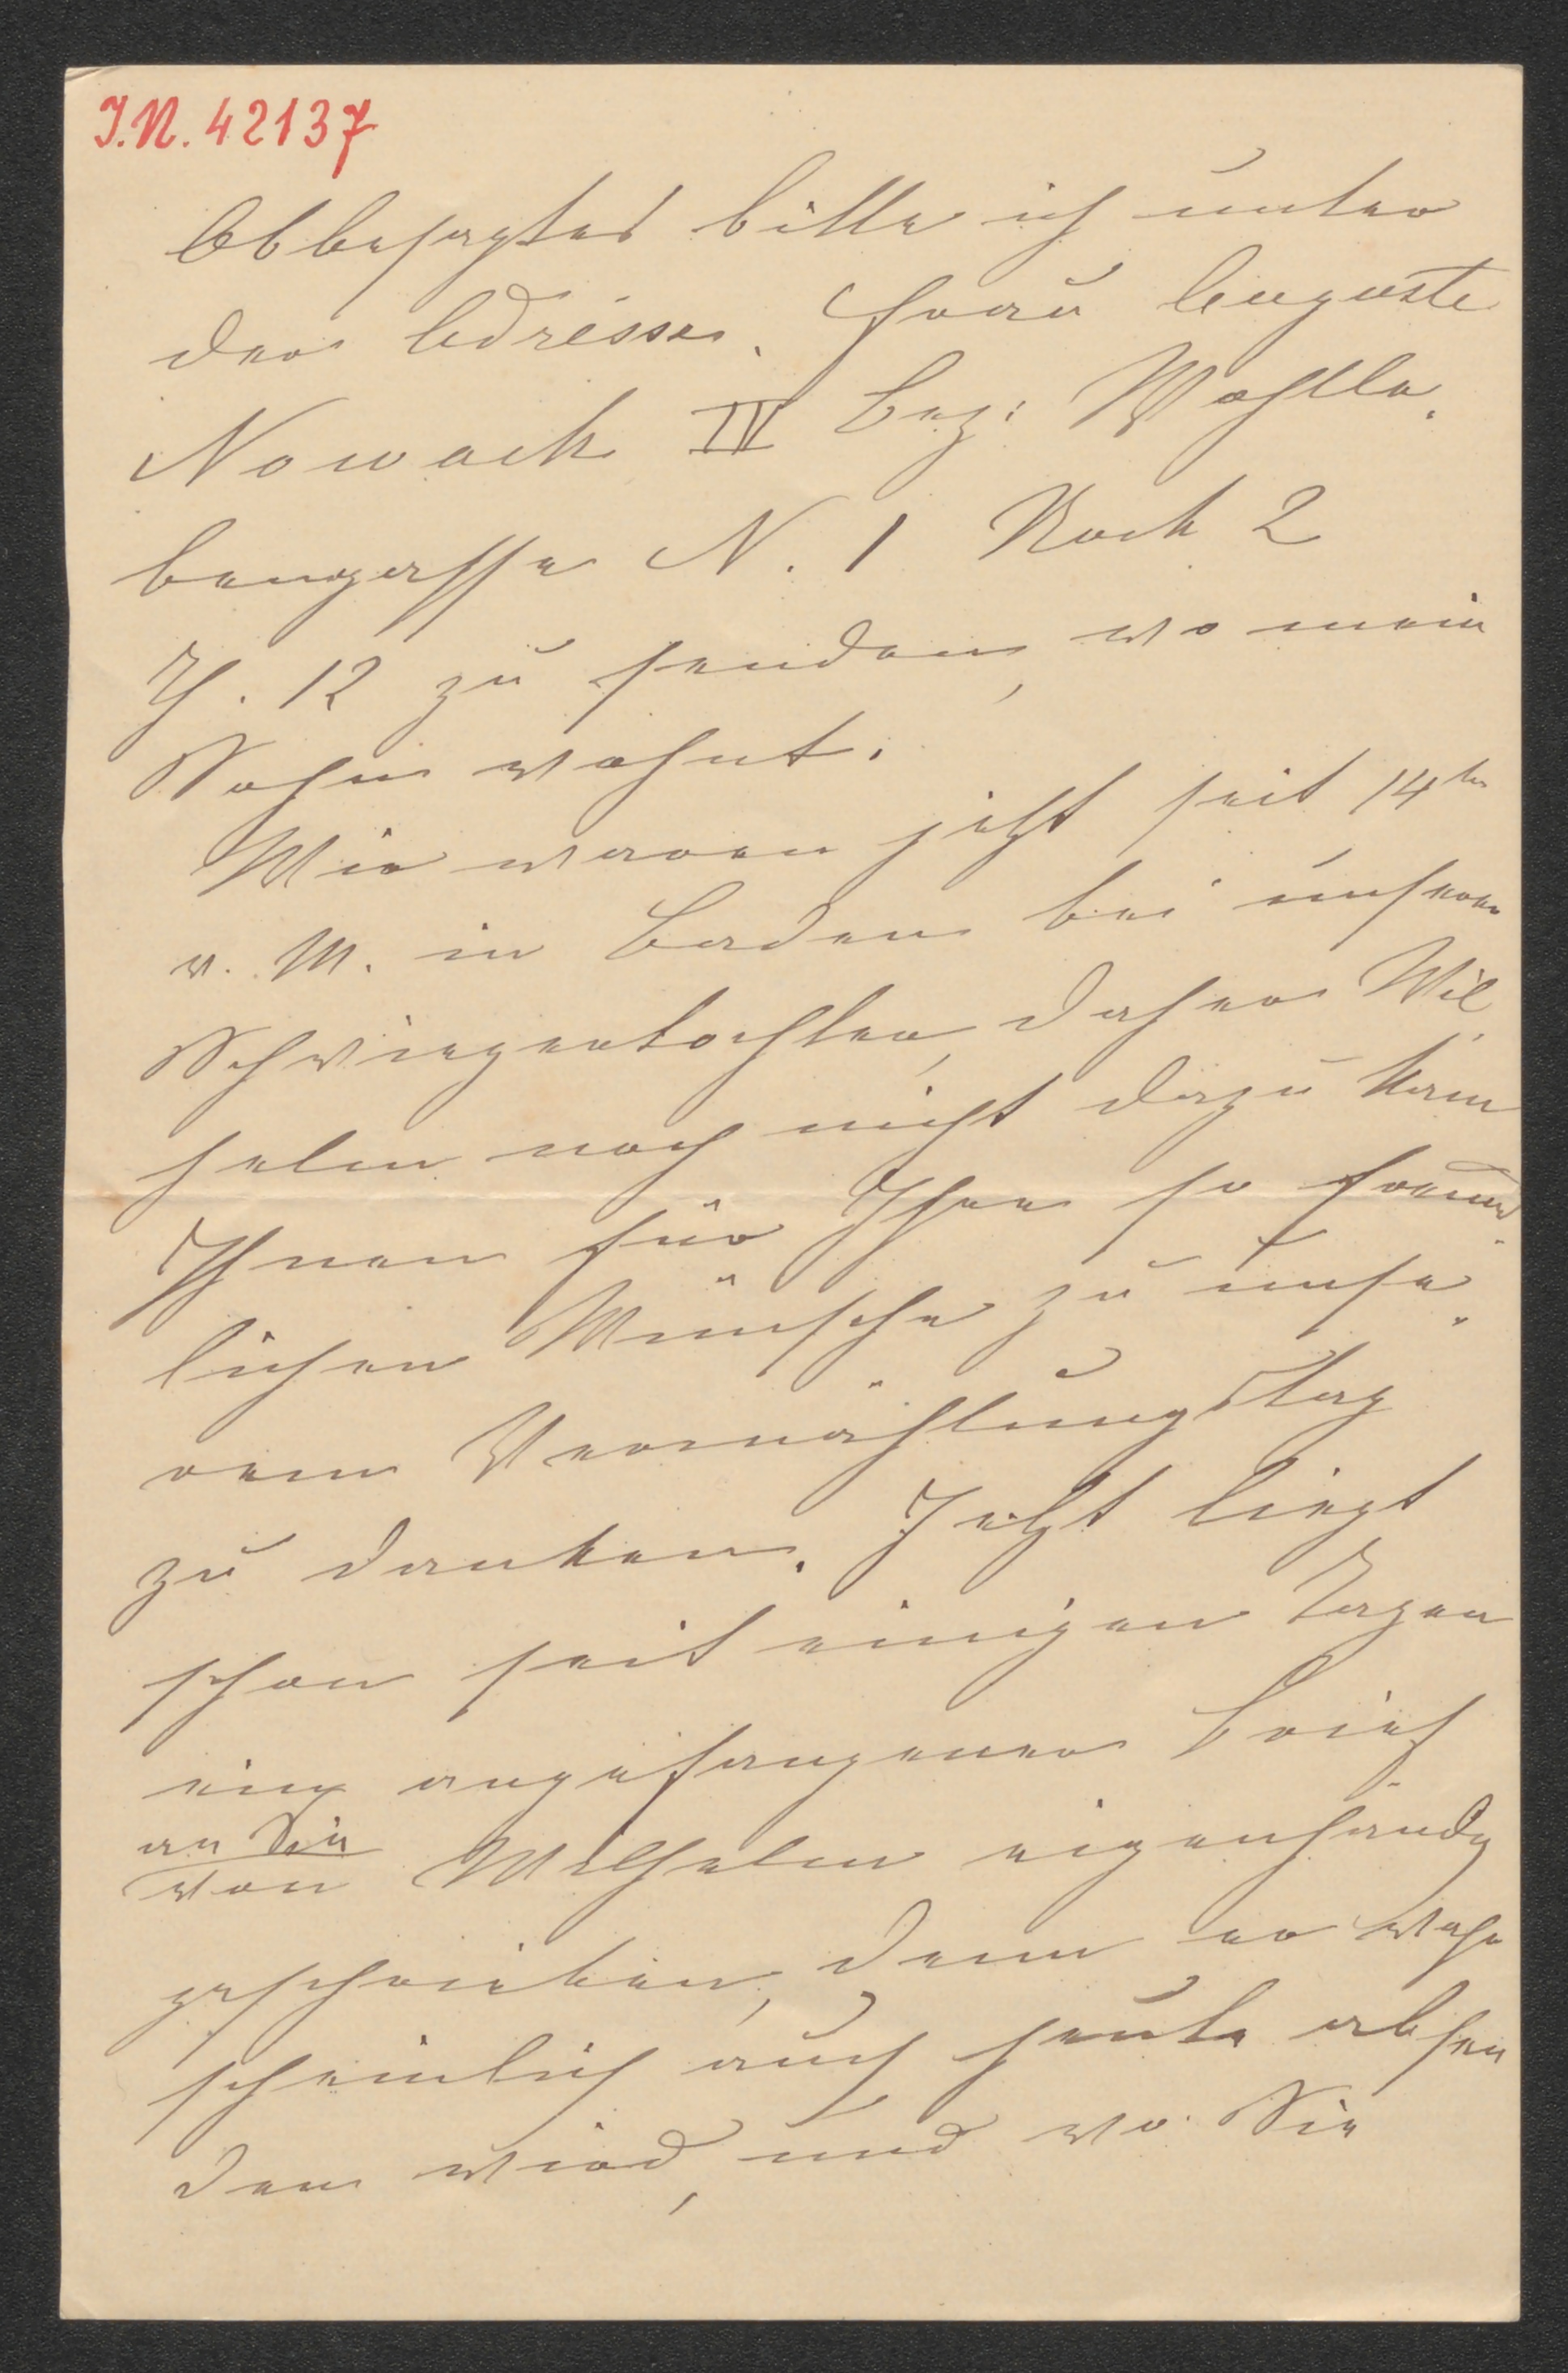 I.N. 42137
Obbesagtes bitte ich unter
der Adresse. Frau Auguste
Nowack IV Bez: Wohlle.
bengasse N. 1 Stock 2
Th. 12 zu senden, wo mein
Sohn wohnt.
Wir waren jetzt seit 14ten
v. M. in Baden bei unserer
Schwiegertochter, daher Wil.
helm noch nicht dazu kam
Ihnen für Ihre so freund.
lichen Wünsche zu unse.
rem Vermählungstag
zu danken. Jetzt liegt
schon seit einigen Tagen
ein angefangener Brief
an Sie
von Wilhelm eigenhändg
geschrieben, denn er wahr
scheinlich auch heute absen
den wird, und wo Sie